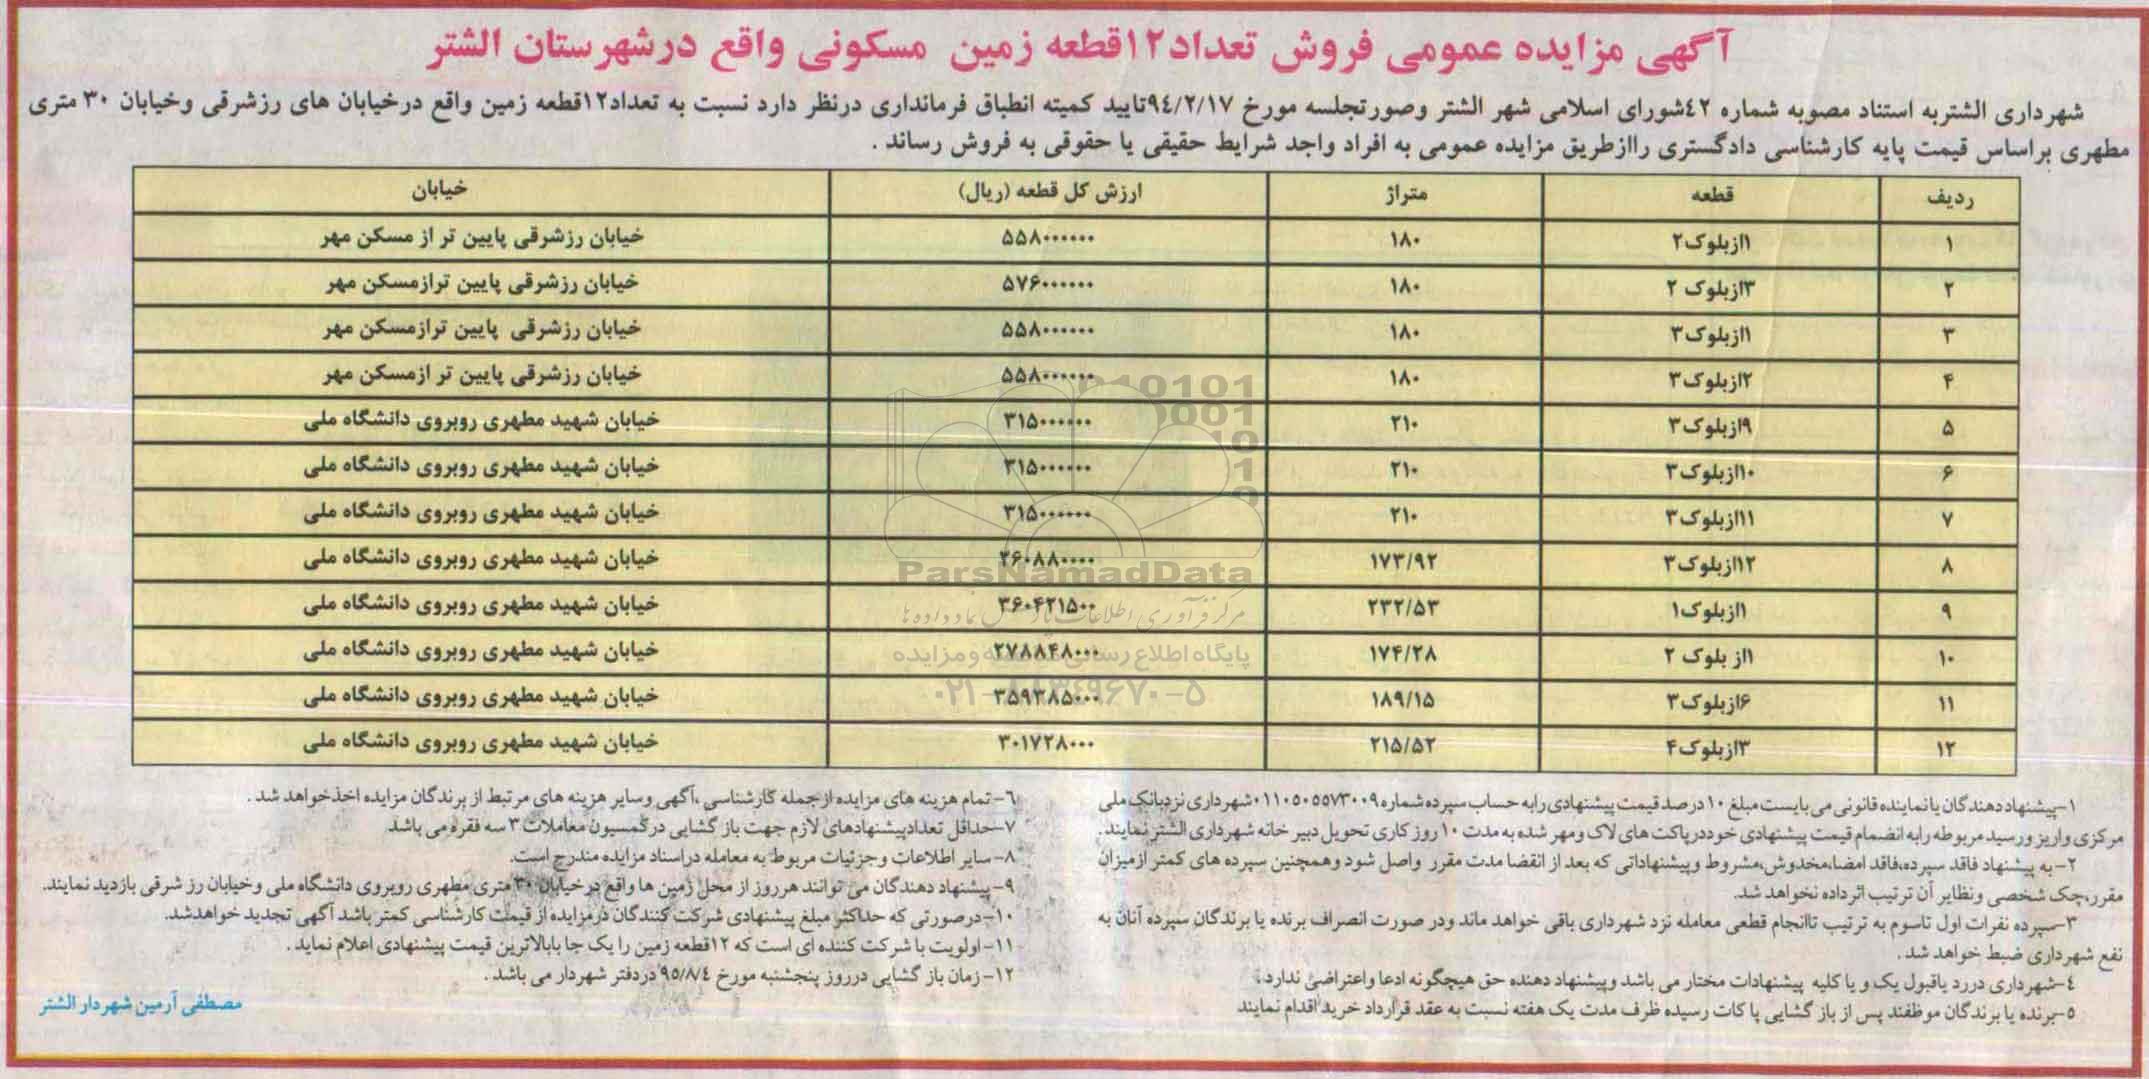 آگهی مزایده عمومی فروش تعداد۱۲قطعه زمین مسکونی واقع درشهرستان الشتر
شهرداری الشتربه استناد مصوبه شماره ٤۲شورای اسلامی شهر الشتر وصورتجلسه مورخ ۹٤/۲/۱۷تایید کمیته انطباق فرمانداری درنظر دارد نسبت به تعداد۱۲قطعه زمین واقع درخیابان های رزشرقی وخیابان ۳۰ متری
مطهری براساس قیمت پایه کارشناسی دادگستری راازطریق مزایده عمومی به افراد واجد شرایط حقیقی یا حقوقی به فروش رساند .
ردیف قطعه متراژ ارزش کل قطعه (ریال) خیابان
۱ ۱ازبلوک۲ ۱۸۰ ۵۵۸۰۰۰۰۰۰ خیابان رزشرقی پایین تر از مسکن مهر
۲ ۳ازبلوک ۲ ۱۸۰ ۵۷۶۰۰۰۰۰۰ خیابان رزشرقی پایین ترازمسکن مهر
۳ ۱ازبلوک۳ ۱۸۰ ۵۵۸۰۰۰۰۰۰ خیابان رزشرقی پایین ترازمسکن مهر
۴ ۲ازبلوک۳ ۱۸۰ ۵۵۸۰۰۰۰۰۰ خیابان رزشرقی پایین تر ازمسکن مهر
۵ ۹ازبلوک۳ ۲۱۰ ۳۱۵۰۰۰۰۰۰ خیابان شهید مطهری روبروی دانشگاه ملی
۶ ۱۰ازبلوک۳ ۲۱۰ ۳۱۵۰۰۰۰۰۰ خیابان شهید مطهری روبروی دانشگاه ملی
۷ ۱۱ازبلوک۳ ۲۱۰ ۳۱۵۰۰۰۰۰۰ خیابان شهید مطهری روبروی دانشگاه ملی
۸ ۱۲ازبلوک۳ ۱۷۳/۹۲ ۲۶۰۸۸۰۰۰۰ خیابان شهید مطهری روبروی دانشگاه ملی
۹ ۱ازبلوک۱ ۲۳۲/۵۳ ۳۶۰۴۲۱۵۰۰ خیابان شهید مطهری روبروی دانشگاه ملی
۱۰ ۱از بلوک ۲ ۱۷۴/۲۸ ۲۷۸۸۴۸۰۰۰ خیابان شهید مطهری روبروی دانشگاه ملی
۱۱ ۶ازبلوک۳ ۱۸۹/۱۵ ۳۵۹۳۸۵۰۰۰ خیابان شهید مطهری روبروی دانشگاه ملی
۱۲ ۳ازبلوک۴ ۲۱۵/۵۲ ۳۰۱۷۲۸۰۰۰ خیابان شهید مطهری روبروی دانشگاه ملی
ParsNamadData
پایگاه اطلاع رسانی مناقصه و مزایده
۰۲۱-۸۸۳٤۹۶۷۰-۵
۱-پیشنهاد دهندگان یانماینده قانونی می بایست مبلغ ۱۰ درصد قیمت پیشنهادی رابه حساب سپرده شماره ۰۱۱۰۵۰۵۵۷۳۰۰۹شهرداری نزدبانک ملی
مرکزی واریز ورسید مربوطه رابه انضمام قیمت پیشنهادی خوددرپاکت های لاک ومهر شده به مدت ۱۰ روز کاری تحویل دبیر خانه شهرداری الشتر نمایند.
۲-به پیشنهاد فاقد سپرده،فاقد امضاء،مخدوش،مشروط وپیشنهاداتی که بعد از انقضا مدت مقرر واصل شود وهمچنین سپرده های کمتر ازمیزان
مقرر،چک شخصی ونظایر آن ترتیب اثرداده نخواهد شد.
۳-سپرده نفرات اول تاسوم به ترتیب تاانجام قطعی معامله نزد شهرداری باقی خواهد ماند ودر صورت انصراف برنده یا برندگان سپرده آنان به
نفع شهرداری ضبط خواهد شد .
٤-شهرداری دررد یاقبول یک و یا کلیه پیشنهادات مختار می باشد وپیشنهاد دهنده حق هیچگونه ادعا واعتراضی ندارد.
۵-برنده یا برندگان موظفند پس از باز گشایی پاکات رسیده ظرف مدت یک هفته نسبت به عقد قرارداد خرید اقدام نمایند
۶-تمام هزینه های مزایده ازجمله کارشناسی ،آگهی وسایر هزینه های مرتبط از برندگان مزایده اخذخواهد شد .
۷-حداقل تعدادپیشنهادهای لازم جهت باز گشایی درکمسیون معاملات ۳ سه فقره می باشد
۸-سایر اطلاعات وجزئیات مربوط به معامله دراسناد مزایده مندرج است.
۹-پیشنهاد دهندگان می توانند هرروز از محل زمین ها واقع درخیابان ۳۰ متری مطهری روبروی دانشگاه ملی وخیابان رز شرقی بازدید نمایند.
۱۰-درصورتی که حداکثر مبلغ پیشنهادی شرکت کنندگان درمزایده از قیمت کارشناسی کمتر باشد آگهی تجدید خواهدشد.
۱۱-اولویت با شرکت کننده ای است که ۱۲قطعه زمین را یک جا بابالاترین قیمت پیشنهادی اعلام نماید .
۱۲-زمان باز گشایی درروز پنجشنبه مورخ ۹۵/۸/٤ دردفتر شهردار می باشد .
مصطفی آرمین شهردار الشتر